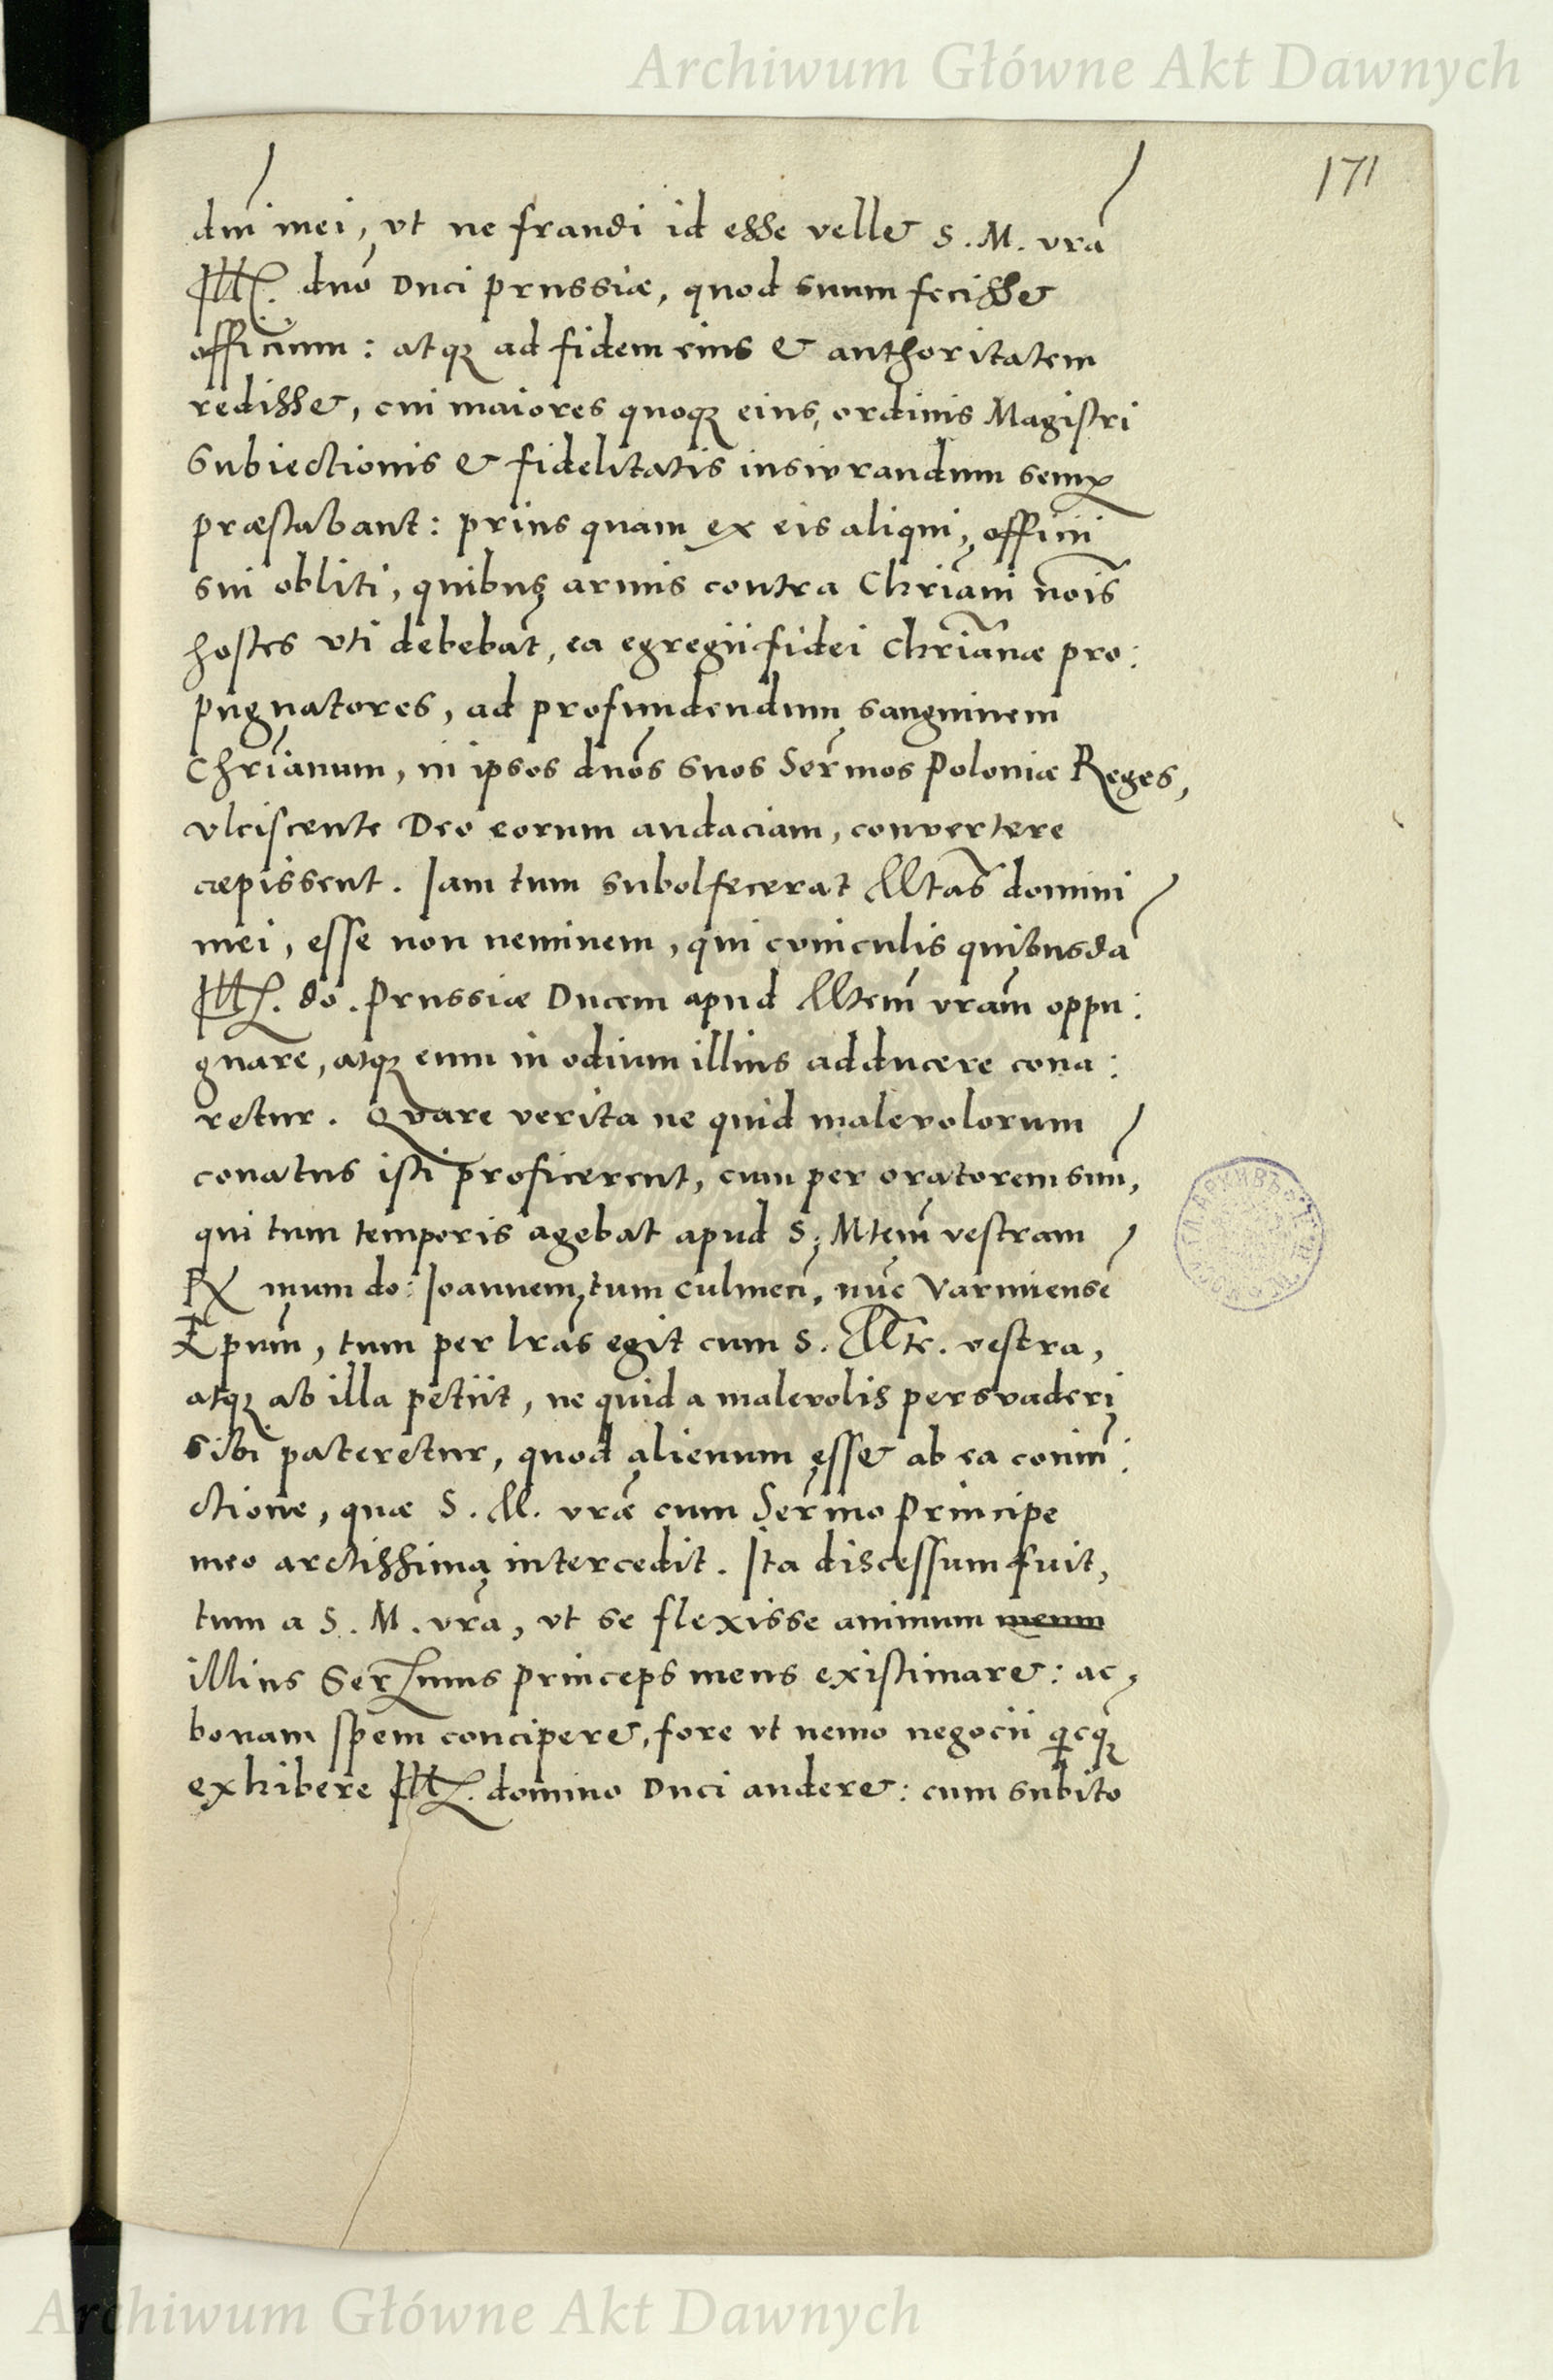 Archiwum Główne Akt Dawnych
171
dni mei, vt ne fraudi id esse vellet S. M. vra
Ill. dno Duci prussiæ, quod suum fecisset
officium: atq ad fidem eius & authoritatem
redisset, cui maiores quoq eius, ordinis Magistri
subiectionis & fidelitatis iusiurandum semp
præstabant: prius quam ex eis aliqui, officii
sui obliti, quibus armis contra Chriani nois
hostes vti debebat, ea egregii fidei Chrianæ pro:
pugnatores, ad profundendum sanguinem
Chrianum, in ipsos dnos suos Sermos Poloniæ Reges,
vlciscente Deo eorum audaciam, convertere
cæpissent. Iam tum subolfecerat Mtas domini
mei, esse non neminem, qui cuniculis quibusda
Ill. do. Prussiæ Ducem apud Mtem vram oppu:
gnare, atq eum in odium illius adducere cona:
retur. Quare verita ne quid malevolorum
conatus isti proficerent, cum per oratorem suu,
qui tum temporis agebat apud S. Mtem vestram
R mum do: Ioannem, tum Culmen, nuc Varmiense
Epum, tum per lras egit cum S. Mte. vestra,
atq ab illa petiit, ne quid a malevolis persvaderi
sibi pateretur, quod alienum esset ab ea coniun:
ctione, quæ S. M. vræ cum Sermo Principe
meo arctissima intercedit. Ita discessum fuit,
tum a S. M. vra, vt se flexisse animum meum
illius Ser mus princeps meus existimaret: ac
bonam spem conciperet, fore vt nemo negocii qicq
exhibere Ill. domino Duci auderet: cum subito
Archiwum Główne Akt Dawnych